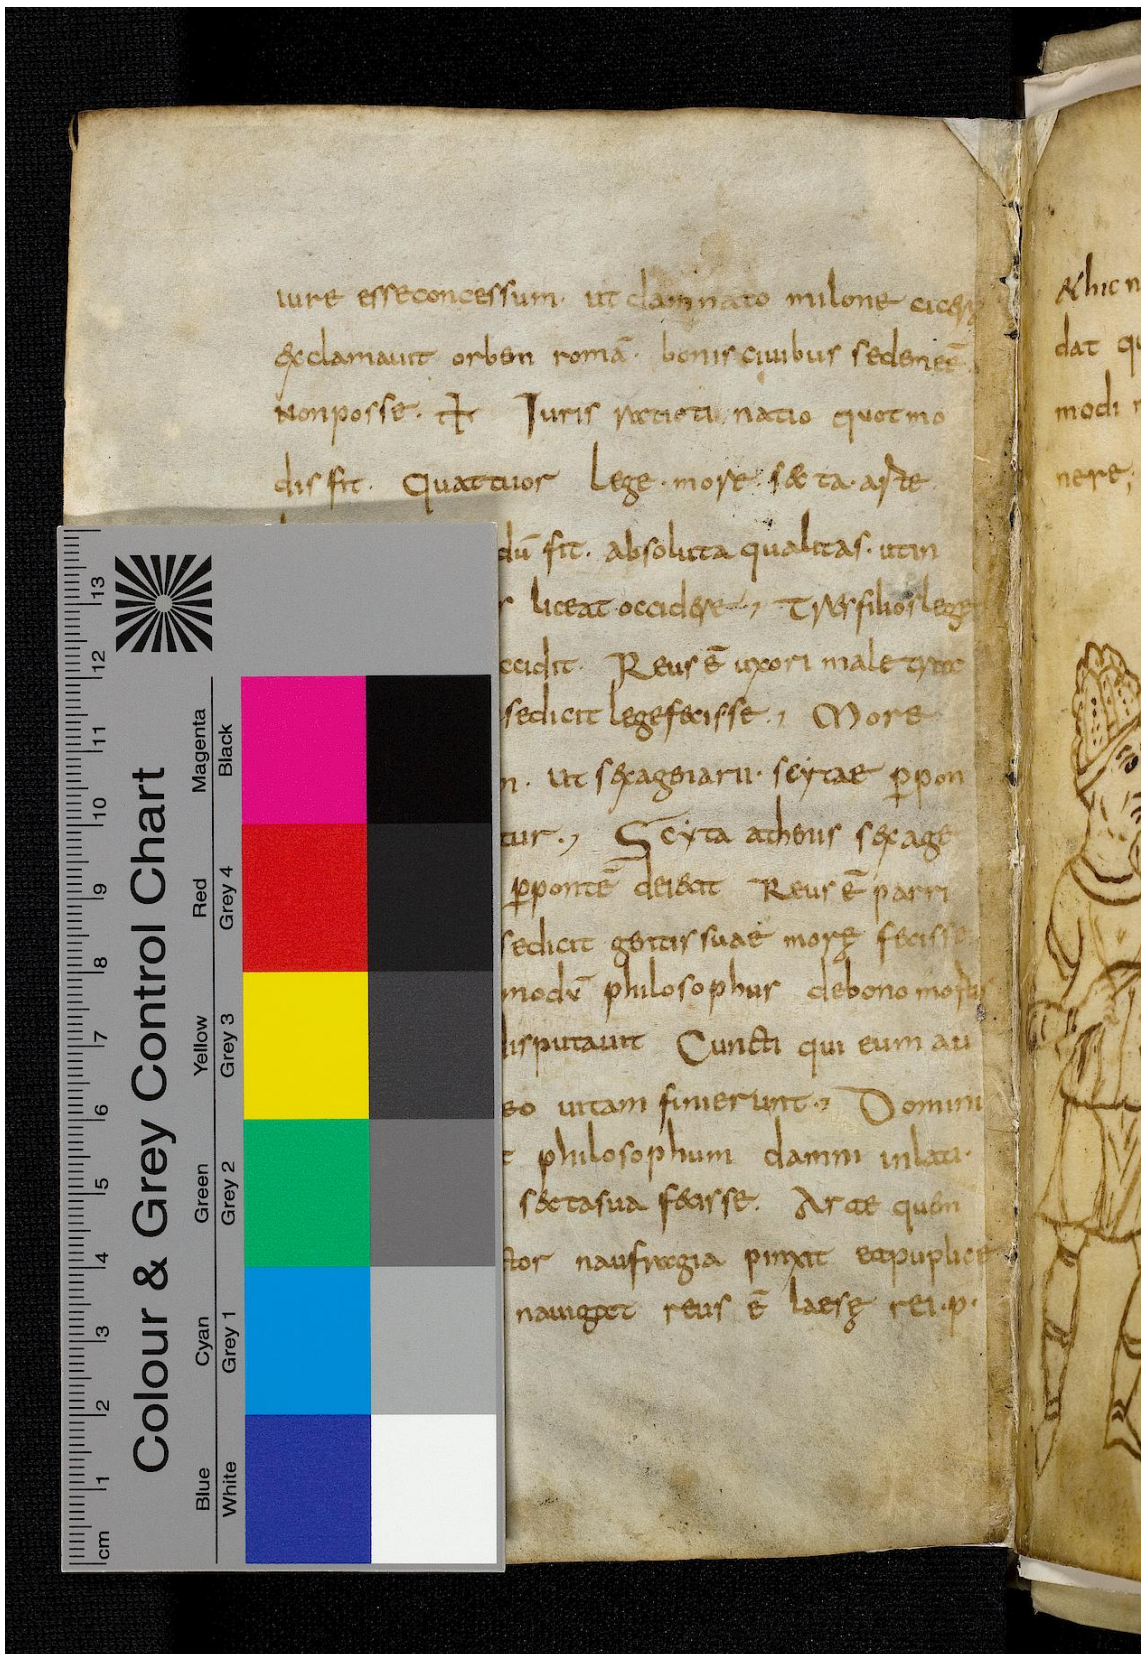 iure esse concessum· ut damnato milone
exclamauit orbem romā· bonis ciuibus
Non posse· Iuris natio quot mo
dis fit· Quattuor lege· more· secta· arte·
dū fit· absoluta qualitas· ut in
liceat occidere·, Tres filios lege
ccidit· Reus ē uxori male trac
se dicit lege fecisse·, More
n· ut sexagenariu· scytae p pon
tur·, Scyta atheus sexage
p pontē deiecit Reus ē parri
se dicit gentis suae more fecisse
modū philosophus de bono mortis
disputauit Cuncti qui eum au
eo uitam finierunt·, Domini
t philosophum damni inlati·
secta sua fecisse· Arte quem
ctor naufragia pinxit
nauigat reus ē laesę rei·p·
& hic n
dat qu
modi n
nere;
Colour & Grey Control Chart
Magenta Black
Red Grey 4
Yellow Grey 3
Green Grey 2
Cyan Grey 1
Blue White
cm 1 2 3 4 5 6 7 8 9 10 11 12 13